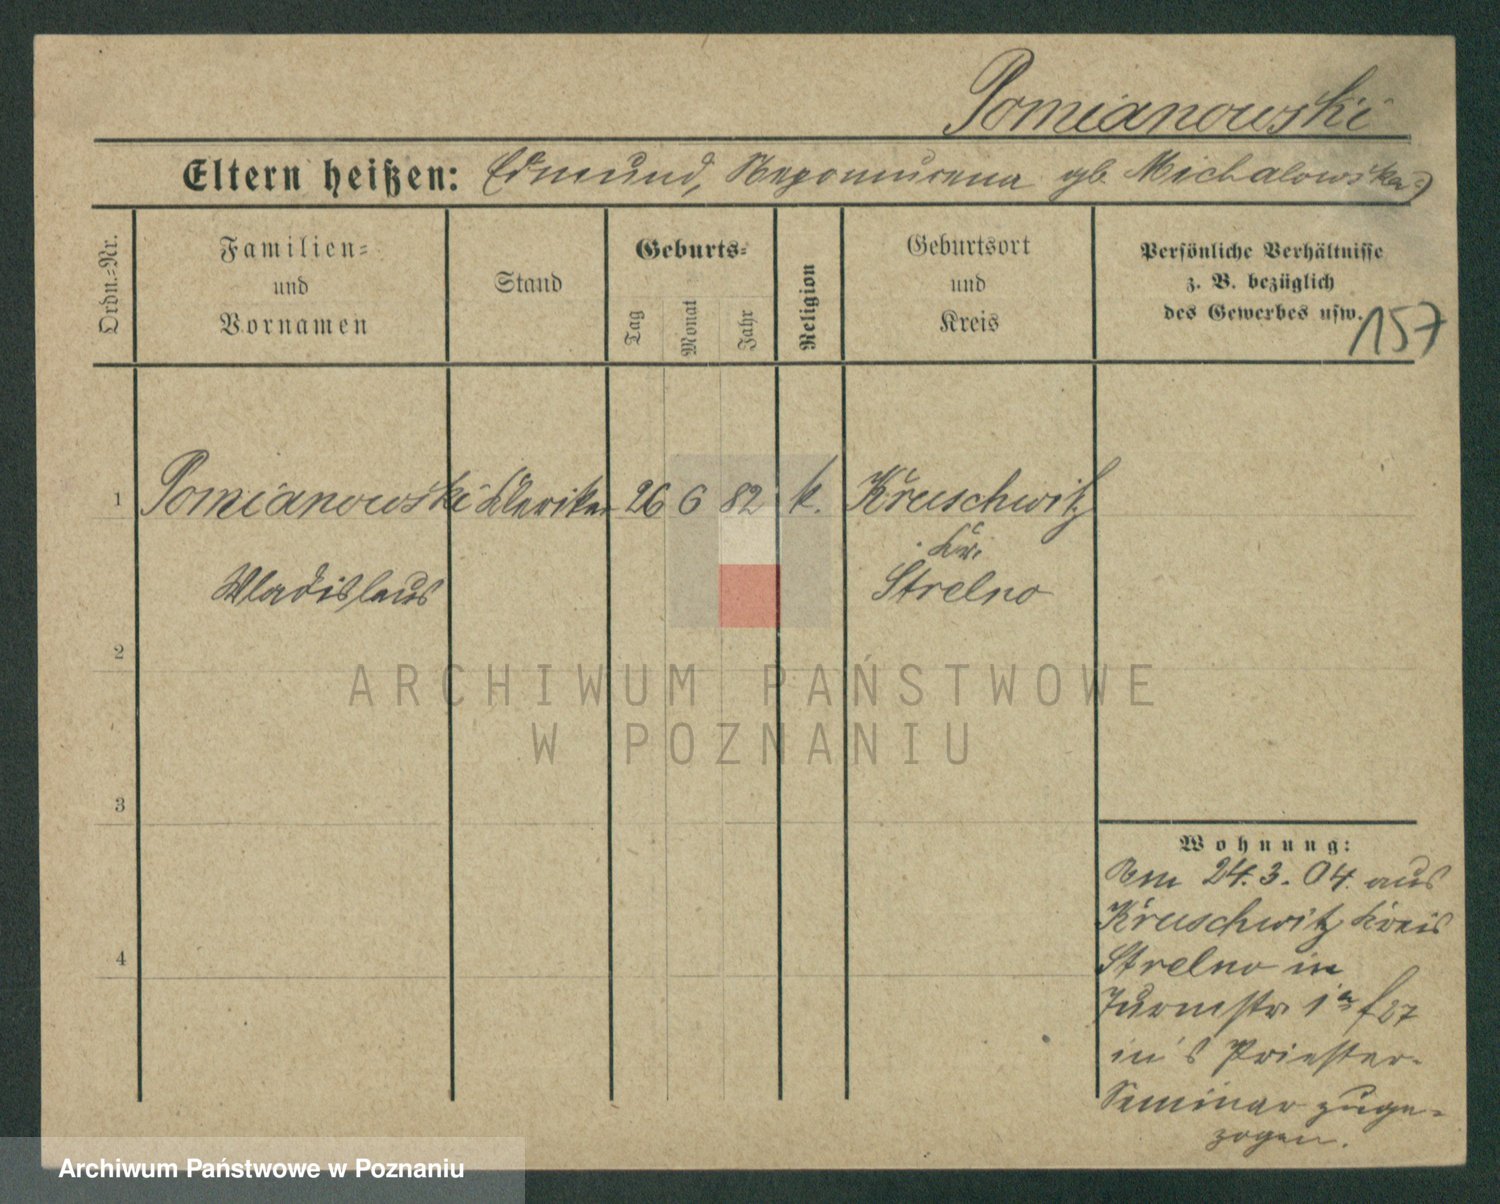 Pomianowski
Eltern heißen: Edmund, Nepomucena gb Michalowska
Ordn.=Nr.
Familien=
und
Vornamen
Stand
Geburts=
Tag
Monat
Jahr
Religion
Geburtsort
und
Kreis
Persönliche Verhältnisse
z. B. bezüglich
des Gewerbes usw.
157
1 Pomianowski Kleriker 26 6 82 k. Kruschwitz
Kr.
Wladislaus Strelno
2
ARCHIWUM PAŃSTWOWE
W POZNANIU
3
Wohnung:
Am 24.3.04. aus
Kruschwitz Kreis
Strelno in
Turmstr 1a
in's Priester-
Seminar zuge-
zogen.
4
Archiwum Państwowe w Poznaniu